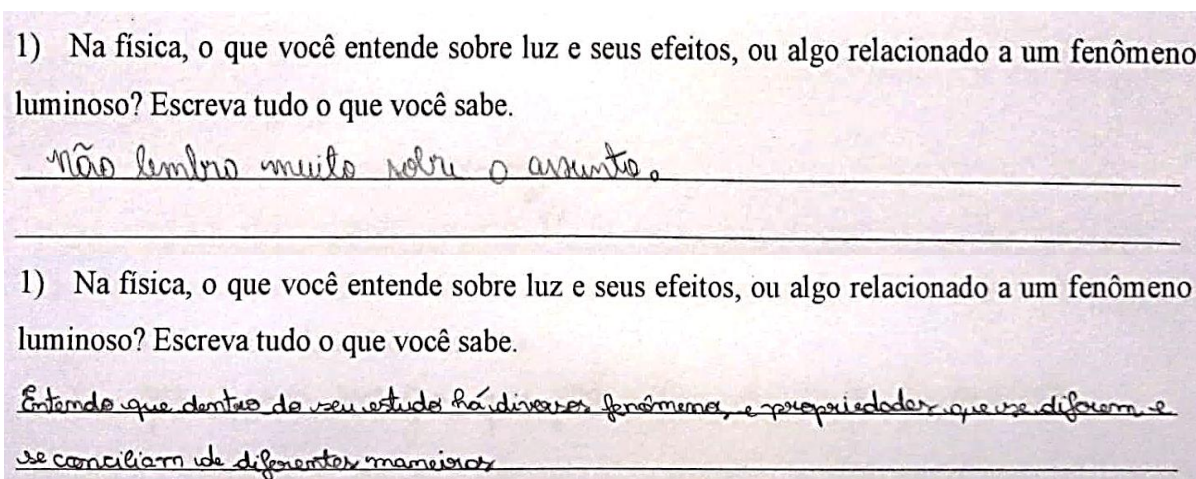 1) Na física, o que você entende sobre luz e seus efeitos, ou algo relacionado a um fenômeno
luminoso? Escreva tudo o que você sabe.
não lembro muito sobre o assunto.
1) Na física, o que você entende sobre luz e seus efeitos, ou algo relacionado a um fenômeno
luminoso? Escreva tudo o que você sabe.
Entendo que dentro do seu estudo há diversos fenômenos, e propriedades que se diferem e
se conciliam de diferentes maneiras